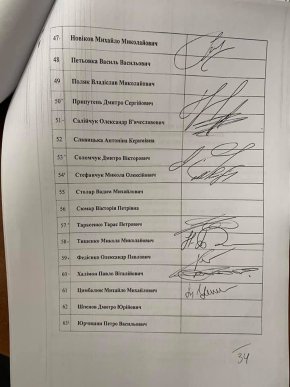 47· Новіков Михайло Миколайович
48 Петьовка Василь Васильович
49 Поляк Владіслав Миколайович
50· Припутень Дмитро Сергійович
51· Салійчук Олександр В'ячеславович
52 Славицька Антоніна Керимівна
53· Соломчук Дмитро Вікторович
54· Стефанчук Микола Олексійович
55 Столар Вадим Михайлович
56 Сюмар Вікторія Петрівна
57· Тарасенко Тарас Петрович
58· Тищенко Микола Миколайович
59· Федієнко Олександр Павлович
60· Халімон Павло Віталійович
61 Цимбалюк Михайло Михайлович
62 Шпенов Дмитро Юрійович
63 Юрчишин Петро Васильович
34